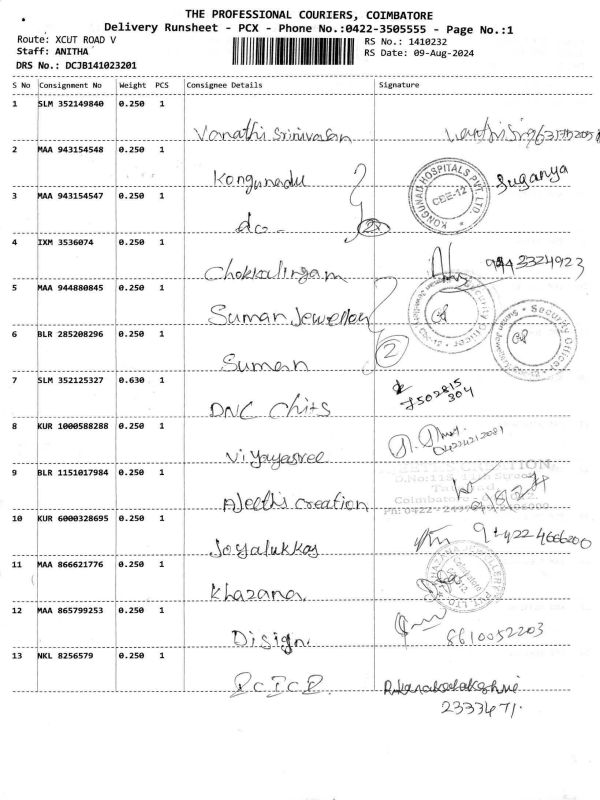 THE PROFESSIONAL COURIERS, COIMBATORE
Delivery Runsheet - PCX - Phone No.:0422-3505555 - Page No.:1
Route: XCUT ROAD V
RS No.: 1410232
Staff: ANITHA
RS Date: 09-Aug-2024
DRS No.: DCJB141023201
S No Consignment No Weight PCS Consignee Details Signature
1 SLM 352149840 0.250 1
Vanathi Srinivasan
2 MAA 943154548 0.250 1
Kongunadu Suganya
KONGUNAD HOSPITALS PVT. LTD.
CBE-12
3 MAA 943154547 0.250 1
do - 2
4 IXM 3536074 0.250 1
Chokkalingam 9443324923
5 MAA 944880845 0.250 1
Suman Jewellery
Security Officer
6 BLR 285208296 0.250 1
Suman 2
Security Officer
7 SLM 352125327 0.630 1
DNC Chits 7502815
304
8 KUR 1000588288 0.250 1
Vijayasree 04224212081
9 BLR 1151017984 0.250 1
Ajeeths Creation
10 KUR 6000328695 0.250 1
Josyalukkas 9+4224666200
11 MAA 866621776 0.250 1
Khazana
KHAZANA JEWELLERY PVT. LTD
Coimbatore
12 MAA 865799253 0.250 1
Disign 8610052203
13 NKL 8256579 0.250 1
ICICI R. Kanakalakshmi
2333471.